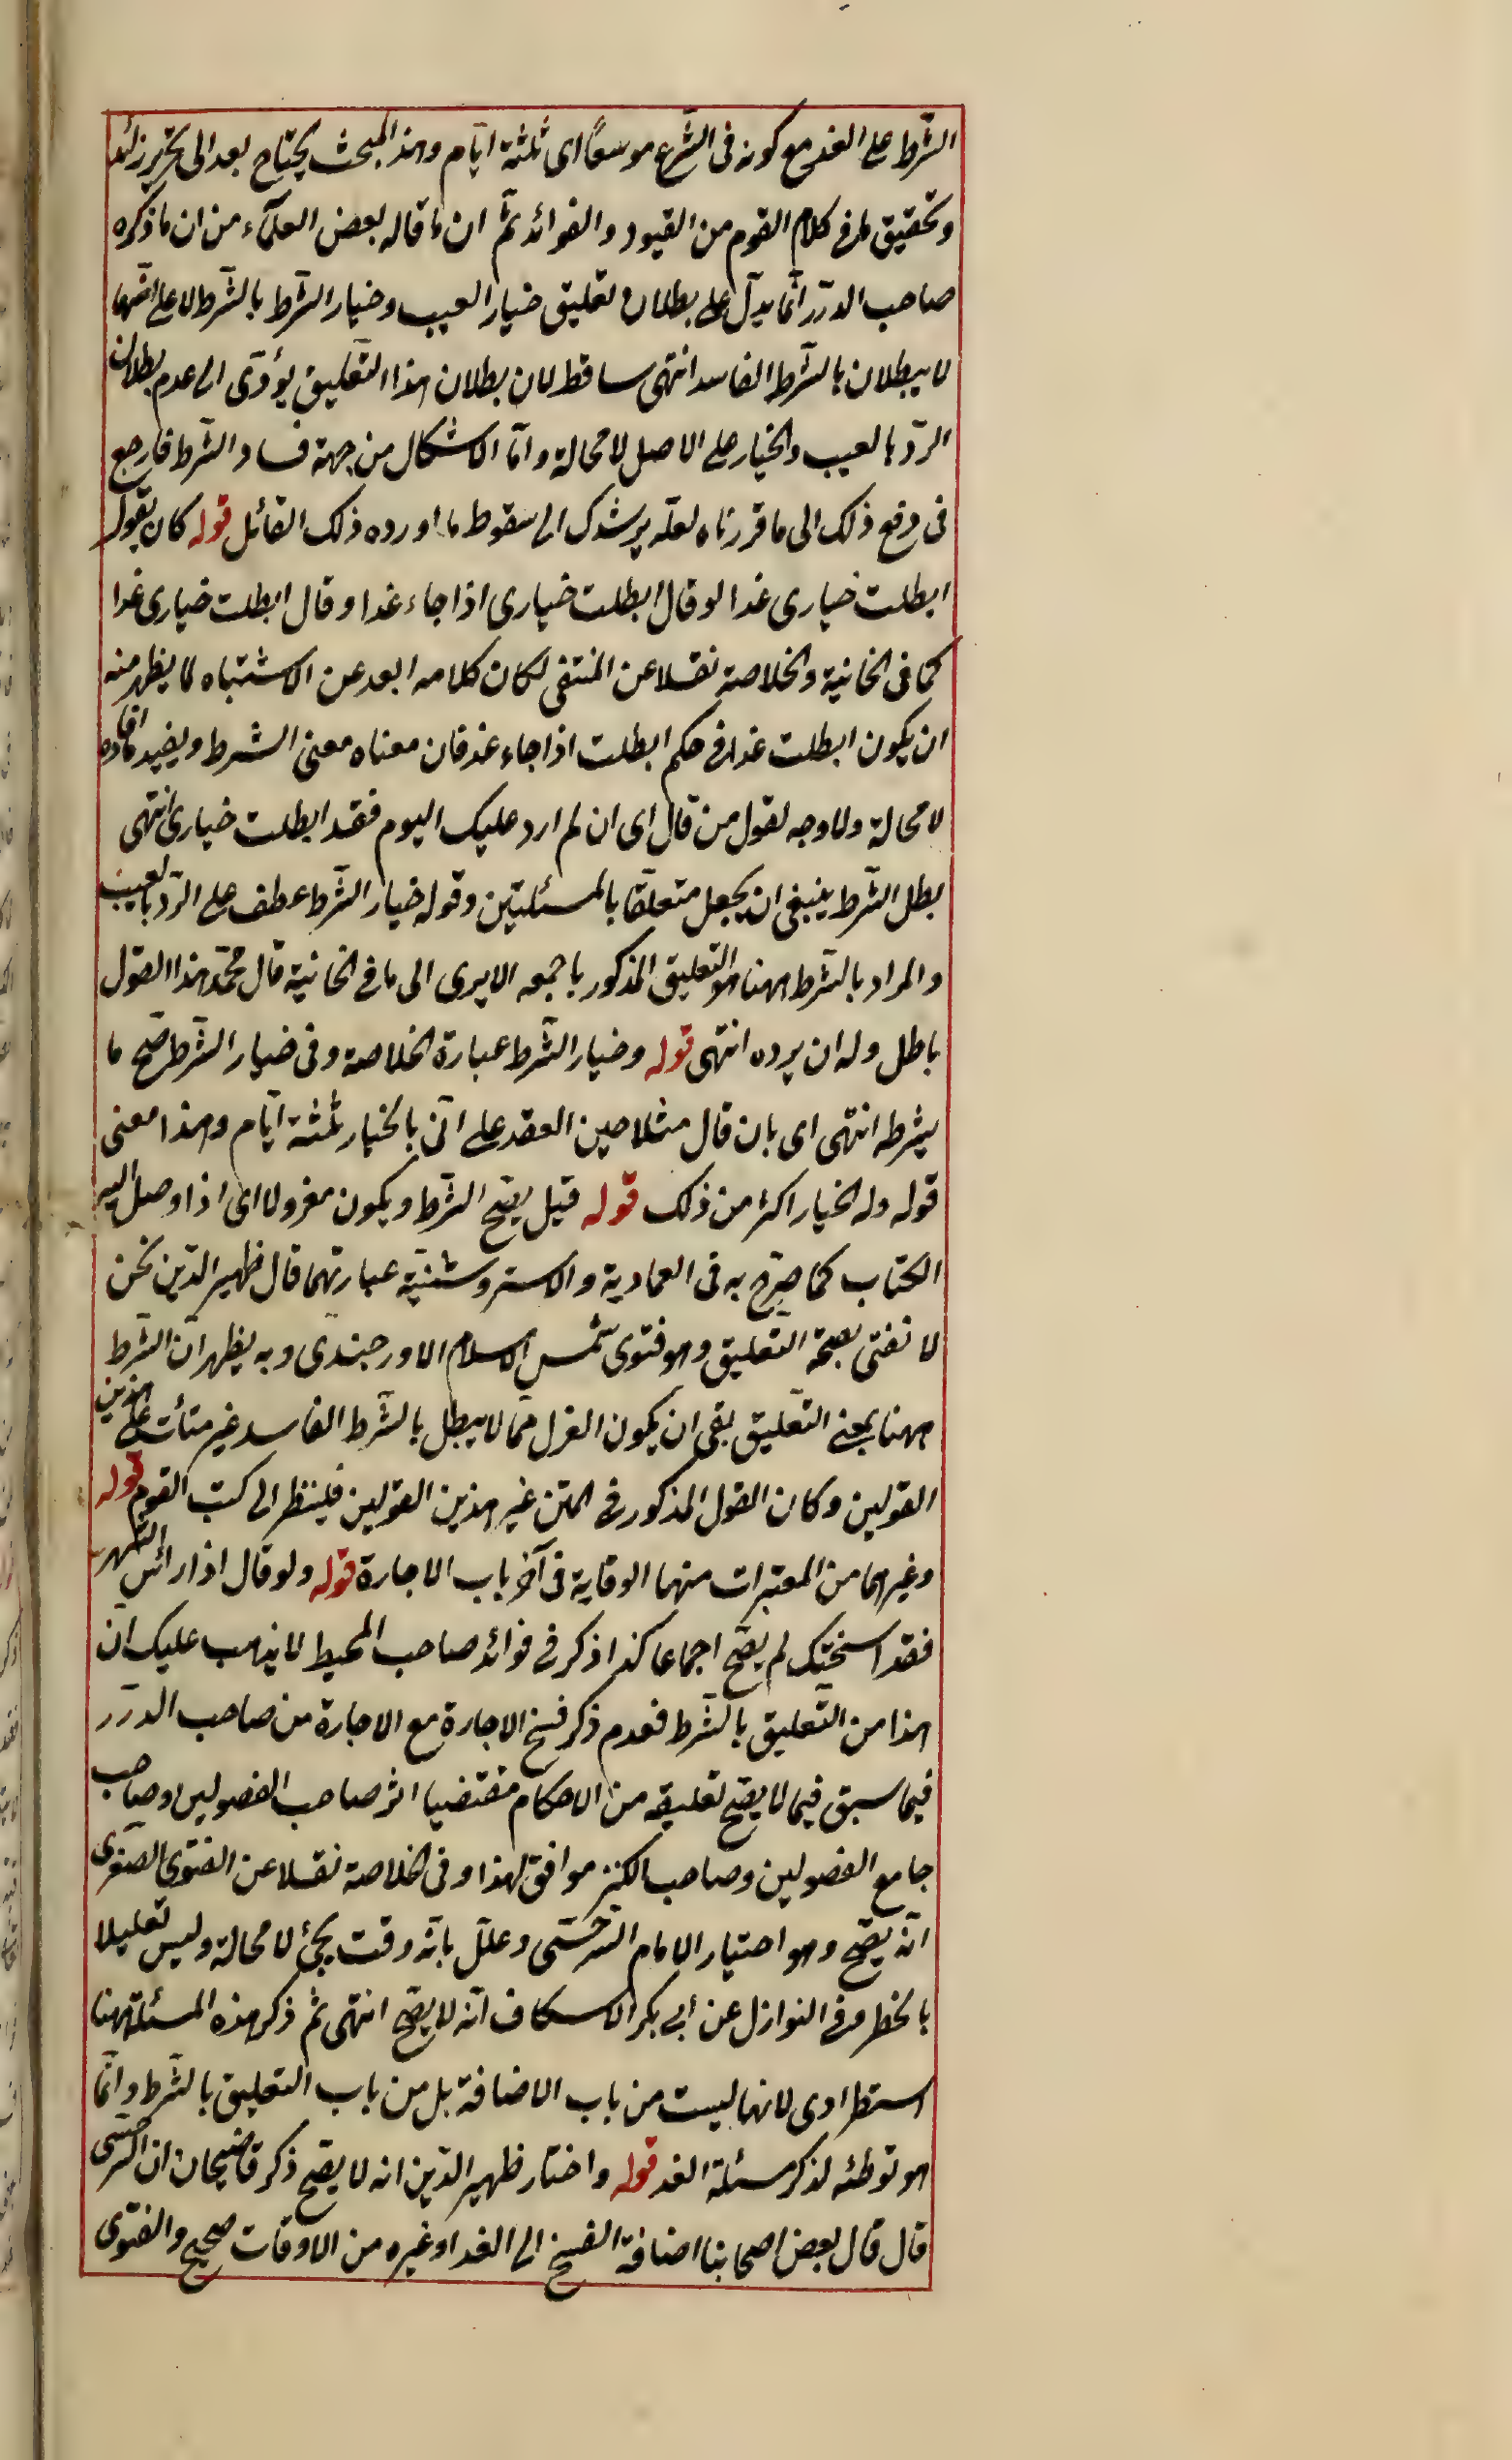 الشّرط على الغد مع كونه فى الشّرع موسعًا اى ثلثة ايّام وهذا المبحث يحتاج بعد الى تحرير زائد
وتحقيق ما فى كلام القوم من القيود والفوائد ثمّ ان ما قاله بعض العلماء من ان ما ذكره
صاحب الدرر انّما يدلّ على بطلان تعليق خيار العيب وخيار الشّرط بالشّرط لا على انهما
لا يبطلان بالشّرط الفاسد انتهى ساقط لان بطلان هذا التّعليق يؤدّى الى عدم بطلان
الردّ بالعيب والخيار على الاصل لا محالة وامّا الاشكال من جهة فساد الشّرط فارجع
فى دفع ذلك الى ما قررناه لعلّه يرشدك الى سقوط ما اورده ذلك القائل قوله كان يقول
ابطلت خيارى غدا لو قال ابطلت خيارى اذا جاء غدا وقال ابطلت خيارى غدا
كما فى الخانية والخلاصة نقلا عن المنتقى لكان كلامه ابعد عن الاشتباه لما يظهر منه
ان يكون ابطلت غدا فى حكم ابطلت اذا جاء غد فان معناه معنى الشرط ويفيد ما افاده
لا محالة ولا وجه لقول من قال اى ان لم ارد عليك اليوم فقد ابطلت خيارى انتهى
بطل الشّرط ينبغى ان يجعل متعلّقا بالمسئلتين وقوله خيار الشّرط عطف على الردّ بالعيب
والمراد بالشّرط ههنا هو التعليق المذكور باجمعه الا يرى الى ما فى الخانية قال محمّد هذا القول
باطل وله ان يرده انتهى قوله وخيار الشّرط عبارة الخلاصة وفى خيار الشّرط صحّ ما
يشرطه انتهى اى بان قال مثلا حين العقد على انّى بالخيار ثلثة ايّام وهذا معنى
قوله وله الخيار اكثر من ذلك قوله قيل يصحّ الشّرط ويكون معزولا اى اذا وصل اليه
الكتاب كما صرّح به فى العمادية والاستروشنيّة عبارتهما قال ظهير الدّين نحن
لا نفتى بصحّة التّعليق وهو فتوى شمس الاسلام الاورجندى وبه يظهر انّ الشّرط
ههنا بمعنى التّعليق بقى ان يكون العزل ممّا لا يبطل بالشّرط الفاسد غير متأت على هذين
القولين وكان القول المذكور فى المتن غير هذين القولين فلينظر الى كتب القوم قوله
وغيرهما من المعتبرات منهما الوقاية فى آخر باب الاجارة قوله ولو قال اذا رأس الشّهر
فقد فسختك لم يصحّ اجماعا كذا ذكر فى فوائد صاحب المحيط لا يذهب عليك انّ
هذا من التّعليق بالشّرط فعدم ذكر فسخ الاجارة مع الاجارة من صاحب الدرر
فيما سبق فيما لا يصحّ تعليقه من الاحكام مقتضيا اثر صاحب الفصولين وصاحب
جامع الفصولين وصاحب الكنز موافق لهذا وفى الخلاصة نقلا عن الفتوى الصغرى
انّه يصحّ وهو اختيار الامام السّرخسى وعلّل بانّه وقت يجئ لا محالة وليس تعليلا
بالخطر وفى النوازل عن ابى بكر الاسكاف انّه لا يصحّ انتهى ثمّ ذكر هذه المسئلة ههنا
استطرادى لانها ليست من باب الاضافة بل من باب التعليق بالشّرط وانّما
هو توطئه لذكر مسئلة الغد قوله واختار ظهير الدّين انه لا يصحّ ذكر قاضيخان ان السّرخسى
قال قال بعض اصحابنا اضافة الفسخ الى الغد او غيره من الاوقات صحيح والفتوى